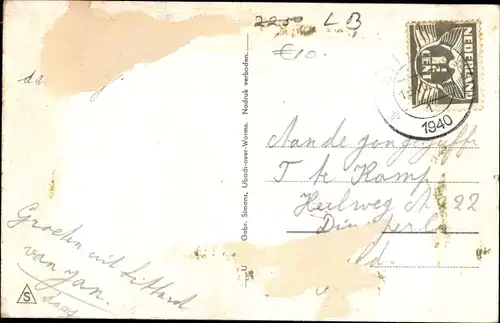 2250 LB
€10.
da
NEDERLAND
1½
CENT
1940
U Gebr. Simons, Ubach-over-Worms. Nadruk verboden.
Aan de jongejuffr
T te Kamp
Heilweg No 22
Groeten uit Sittard
van Jan.
S